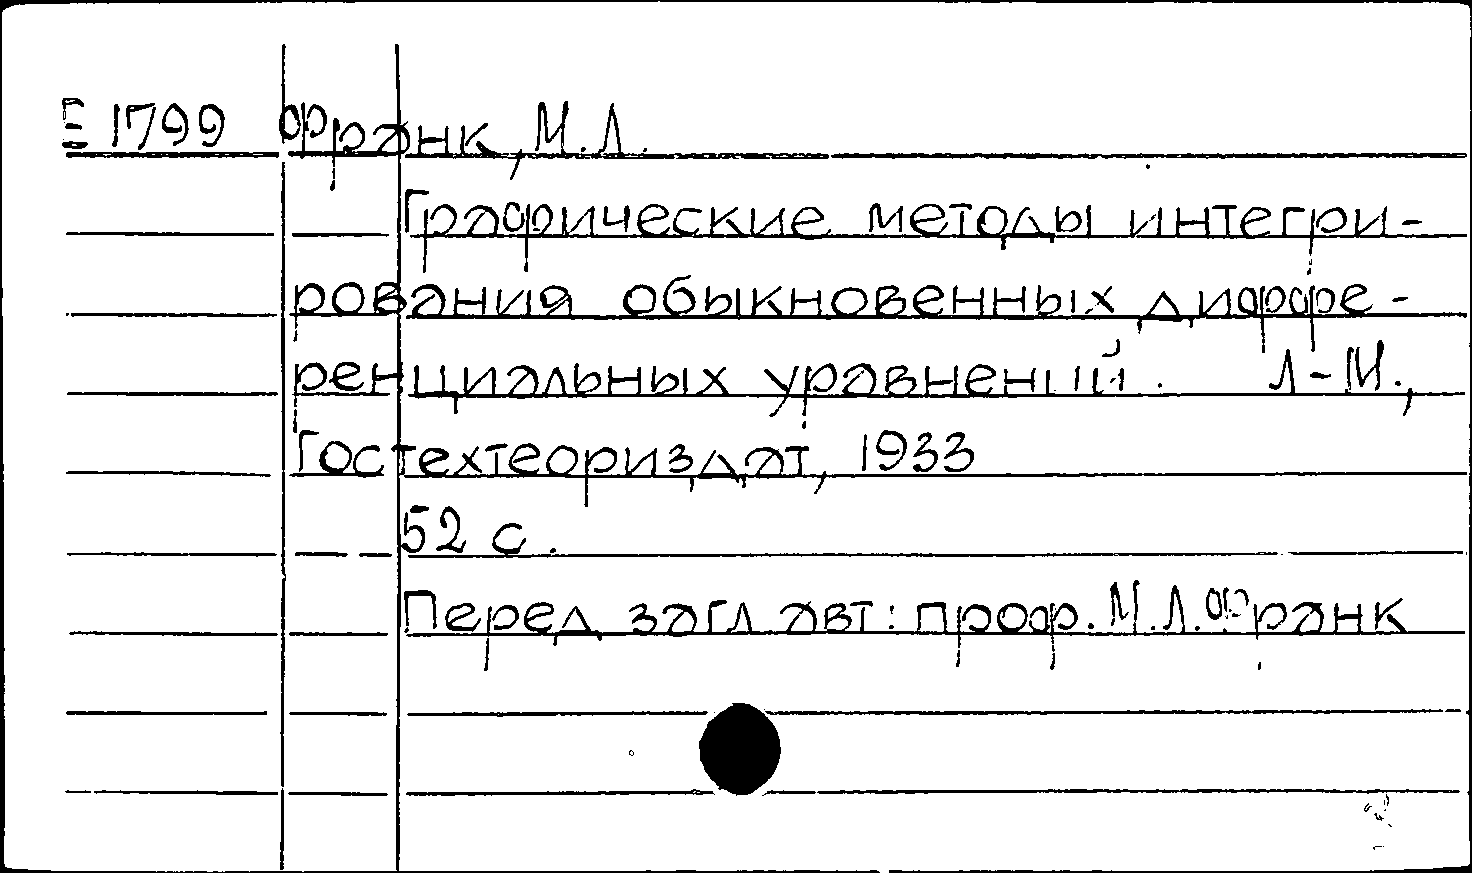 Е 1799 Франк, М.Л.
Графические методы интегри-
рования обыкновенных диффе-
ренциальных уравнений. Л-М.,
Гостехтеориздат, 1933
52 с.
Перед загл авт: проф. М.Л.Франк